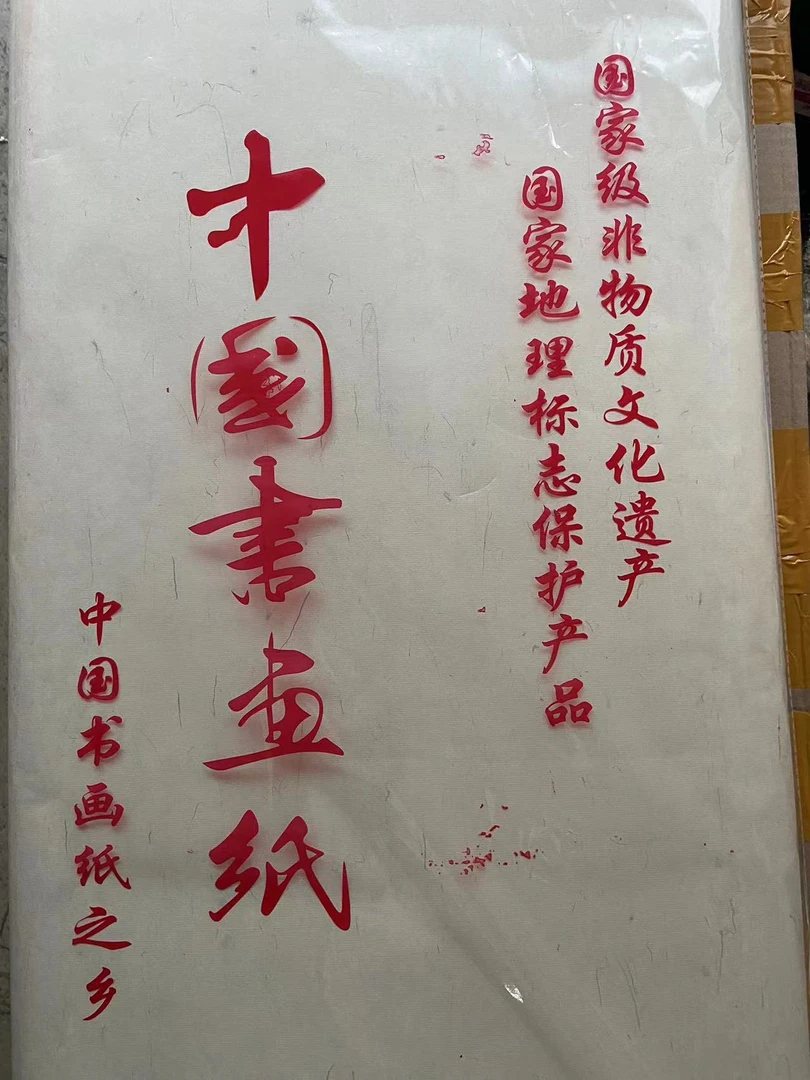 国家级非物质文化遗产
国家地理标志保护产品
中國书画纸
中国书画纸之乡